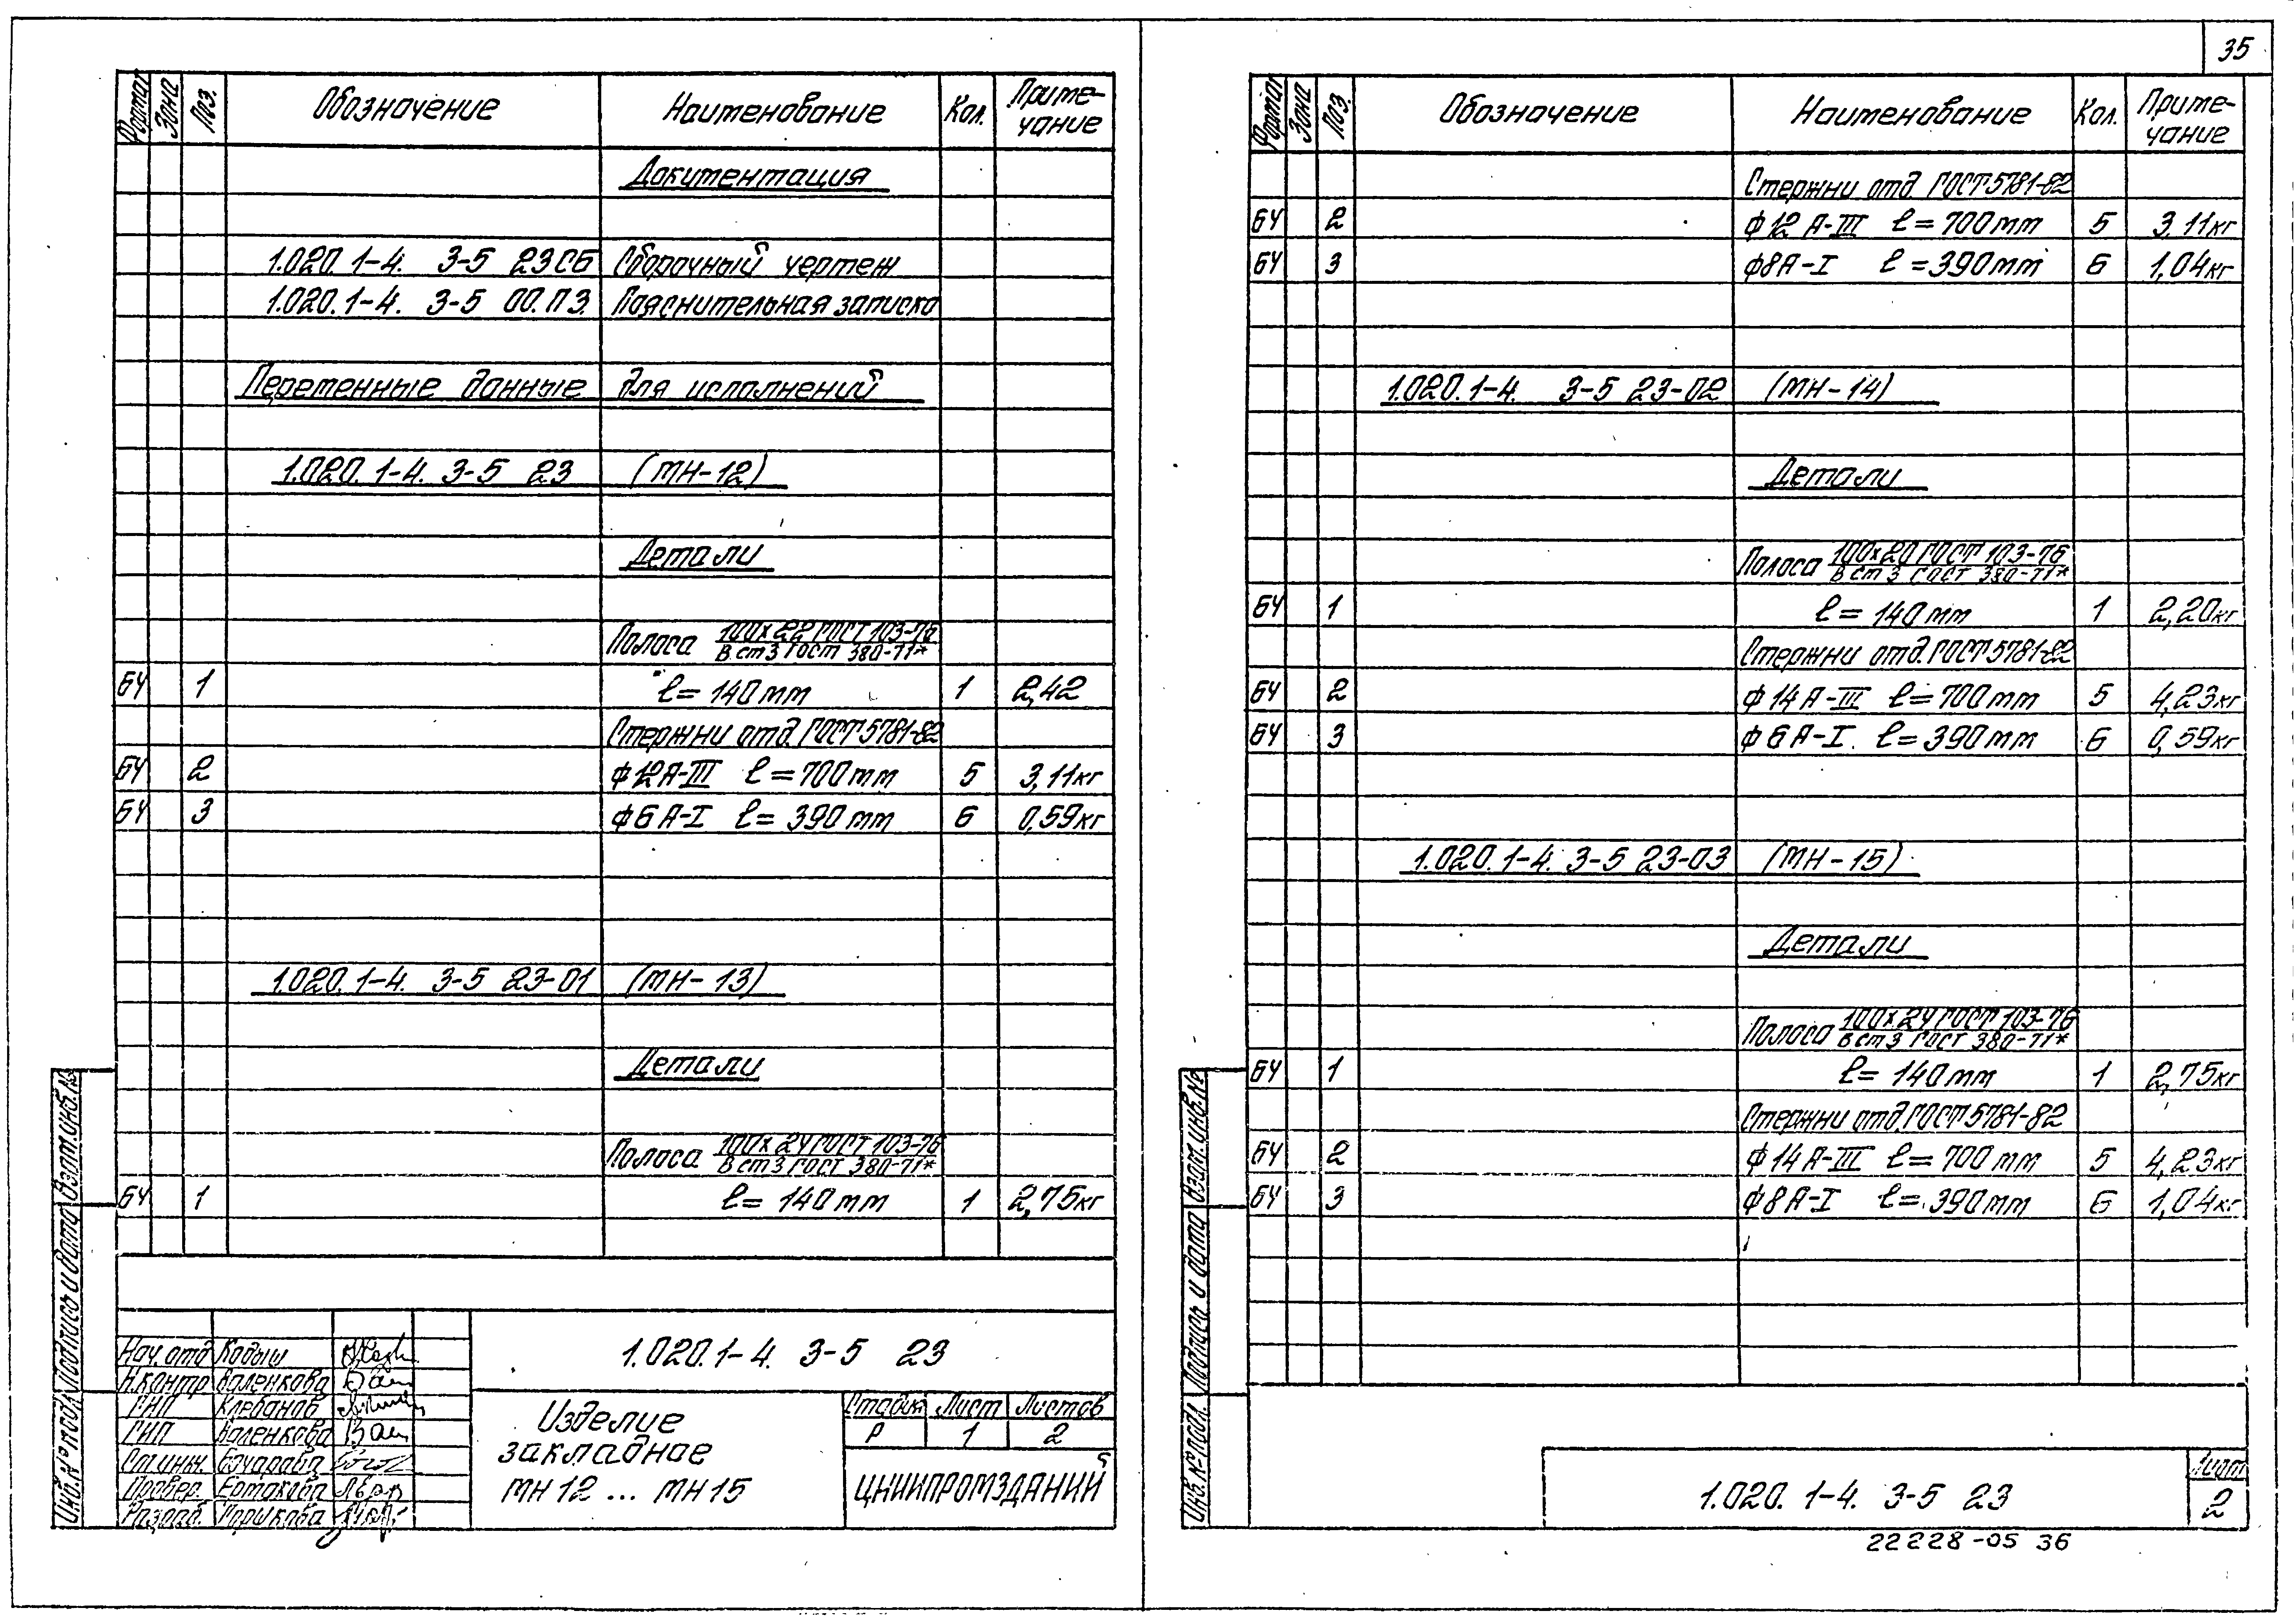 35
Формат Зона Поз. Обозначение Наименование Кол. Приме-
чание
Документация
1.020.1-4. 3-5 23СБ Сборочный чертеж
1.020.1-4. 3-5 00.ПЗ. Пояснительная записка
Переменные данные для исполнений
1.020.1-4. 3-5 23 (МН-12)
Детали
Полоса 100х22 ГОСТ 103-76
В ст3 ГОСТ 380-71*
БЧ 1 ℓ= 140мм 1 2,42
Стержни отд. ГОСТ5781-82
БЧ 2 ф12А-III ℓ=700мм 5 3,11кг
БЧ 3 ф6А-I ℓ= 390мм 6 0,59кг
1.020.1-4. 3-5 23-01 (МН-13)
Детали
Полоса 100х24 ГОСТ 103-76
В ст3 ГОСТ 380-71*
БЧ 1 ℓ= 140мм 1 2,75кг
Нач. отд Кодыш
Н.контр Валенкова
ГИП Клебанов
ГИП Валенкова
Ст.инж.
Провер. Ермакова
Разраб. Горшкова
1.020.1-4. 3-5 23
Изделие
закладное
МН12 ... МН15
Стадия Лист Листов
Р 1 2
ЦНИИПРОМЗДАНИЙ
Инв.№подл. Подпись и дата Взам.инв.№
Формат Зона Поз. Обозначение Наименование Кол. Приме-
чание
Стержни отд. ГОСТ5781-82
БЧ 2 ф12А-III ℓ=700мм 5 3,11кг
БЧ 3 ф8А-I ℓ=390мм 6 1,04кг
1.020.1-4. 3-5 23-02 (МН-14)
Детали
Полоса 100х20 ГОСТ 103-76
В ст3 ГОСТ 380-71*
БЧ 1 ℓ= 140мм 1 2,20кг
Стержни отд. ГОСТ5781-82
БЧ 2 ф14А-III ℓ=700мм 5 4,23кг
БЧ 3 ф6А-I. ℓ=390мм 6 0,59кг
1.020.1-4. 3-5 23-03 (МН-15)
Детали
Полоса 100х24 ГОСТ 103-76
В ст3 ГОСТ 380-71*
БЧ 1 ℓ= 140мм 1 2,75кг
Стержни отд. ГОСТ5781-82
БЧ 2 ф14А-III ℓ=700мм 5 4,23кг
БЧ 3 ф8А-I ℓ=390мм 6 1,04кг
Инв.№подл. Подпись и дата Взам.инв.№
1.020.1-4. 3-5 23
Лист
2
22228-05 36